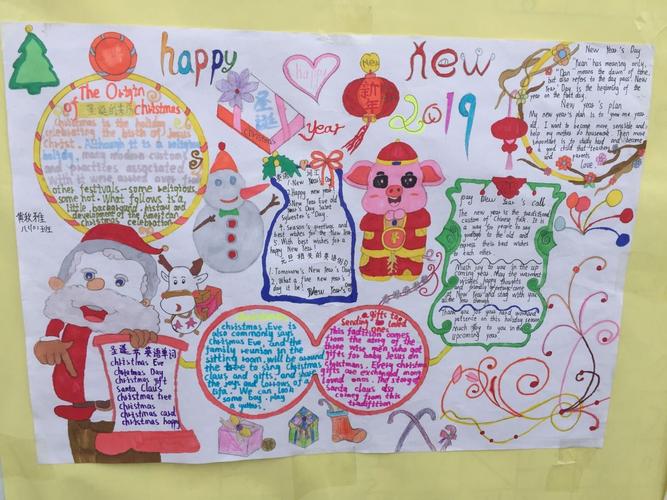 happy new
2019
Year
happy
The Origin
of 圣诞的来历 Christmas
Christmas is the holiday
celebrating the birth of Jesus
Christ. Although it is a religious
holiday, many modern customs
and practices associated
with it were
other festivals—some religious,
some not. What follows is a
little background history and
development of the American
Christmas celebration
圣诞
Christmas
New
新年
New Year's Day
means the dawn of time,
but also refers to the day
Day is the beginning of the
year on the first day.
New year's plan
My new year's plan is to grow one year
old, I want to become more sensible and
help my mother do housework. Then more
important is to study hard and become
a good child that teachers
and parents
love
1. New Year's Day
2. Happy new year!
3. New Year's Eve
Sylvester's Day.
4. Season's greetings and
best wishes for the New Year
5. With best wishes for a
happy New Year!
元旦相关的英语句子
1. Tomorrow's New Year's Day
2. What a fine new year's
day it be!
New Year's Day
New Year's call
The new year is the traditional
custom of Chinese folk. It is
a way for people to say
goodbye to the old and
express their best wishes
to each other.
Much joy to you in the up
coming year. May the warmest
wishes, happy thoughts
and friendly greetings come
at New Year and stay with you
all the year through
Thank you for your hard work and
patience in this holiday season
Much joy to you in the
upcoming year!
christmas Eve is
also commonly says
christmas Eve, and the
family reunion in the
sitting room, will be around
the tree to sing Christmas
claus and gifts, and share
the joys and sorrows of a
life. We can look
some boy, play
a guitar.
gifts to
Sending to loved
ones
This tradition comes
from the story of the
three wise men who gave
gifts for baby Jesus on
Christmas. Every christmas
gifts are exchanged among
loved ones. The story of
Santa claus also
comes from this
tradition
圣诞节英语单词
christmas Eve
christmas Day
christmas gift
Santa claus
christmas tree
christmas
christmas card
christmas happy